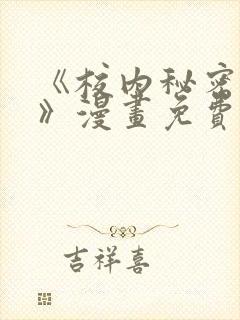 《校内秘密
》漫畫免費
吉祥喜